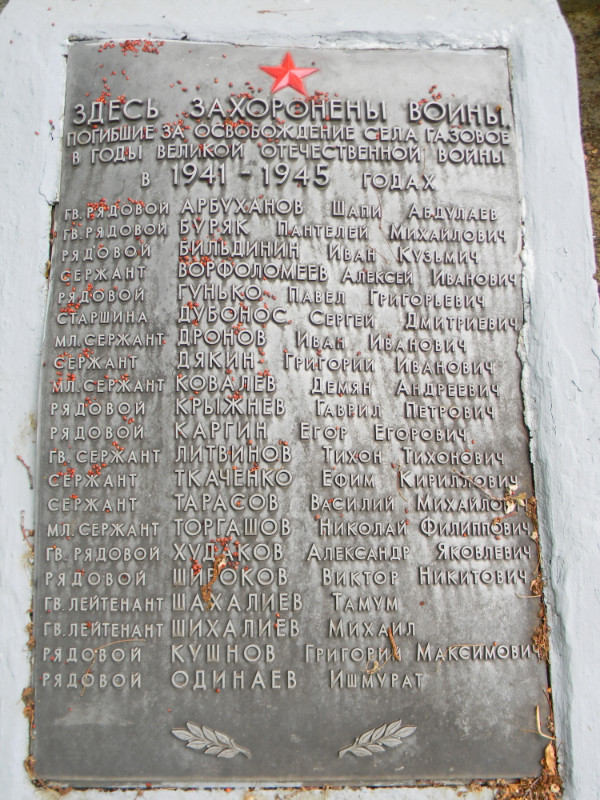 ЗДЕСЬ ЗАХОРОНЕНЫ ВОИНЫ,
ПОГИБШИЕ ЗА ОСВОБОЖДЕНИЕ СЕЛА ГАЗОВОЕ
В ГОДЫ ВЕЛИКОЙ ОТЕЧЕСТВЕННОЙ ВОЙНЫ
В 1941-1945 ГОДАХ
ГВ. РЯДОВОЙ АРБУХАНОВ ШАПИ АБДУЛАЕВ
ГВ. РЯДОВОЙ БУРЯК ПАНТЕЛЕЙ МИХАЙЛОВИЧ
РЯДОВОЙ БИЛЬДИНИН ИВАН КУЗЬМИЧ
СЕРЖАНТ ВОРФОЛОМЕЕВ АЛЕКСЕЙ ИВАНОВИЧ
РЯДОВОЙ ГУНЬКО ПАВЕЛ ГРИГОРЬЕВИЧ
СТАРШИНА ДУБОНОС СЕРГЕЙ ДМИТРИЕВИЧ
МЛ. СЕРЖАНТ ДРОНОВ ИВАН ИВАНОВИЧ
СЕРЖАНТ ДЯКИН ГРИГОРИЙ ИВАНОВИЧ
МЛ. СЕРЖАНТ КОВАЛЕВ ДЕМЯН АНДРЕЕВИЧ
РЯДОВОЙ КРЫЖНЕВ ГАВРИЛ ПЕТРОВИЧ
РЯДОВОЙ КАРГИН ЕГОР ЕГОРОВИЧ
ГВ. СЕРЖАНТ ЛИТВИНОВ ТИХОН ТИХОНОВИЧ
СЕРЖАНТ ТКАЧЕНКО ЕФИМ КИРИЛЛОВИЧ
СЕРЖАНТ ТАРАСОВ ВАСИЛИЙ
МЛ. СЕРЖАНТ ТОРГАШОВ НИКОЛАЙ ФИЛИППОВИЧ
ГВ. РЯДОВОЙ ХУДАКОВ АЛЕКСАНДР ЯКОВЛЕВИЧ
РЯДОВОЙ ШИРОКОВ ВИКТОР НИКИТОВИЧ
ГВ. ЛЕЙТЕНАНТ ШАХАЛИЕВ ТАМУМ
ГВ. ЛЕЙТЕНАНТ ШИХАЛИЕВ МИХАИЛ
РЯДОВОЙ КУШНОВ ГРИГОРИЙ МАКСИМОВИЧ
РЯДОВОЙ ОДИНАЕВ ИШМУРАТ